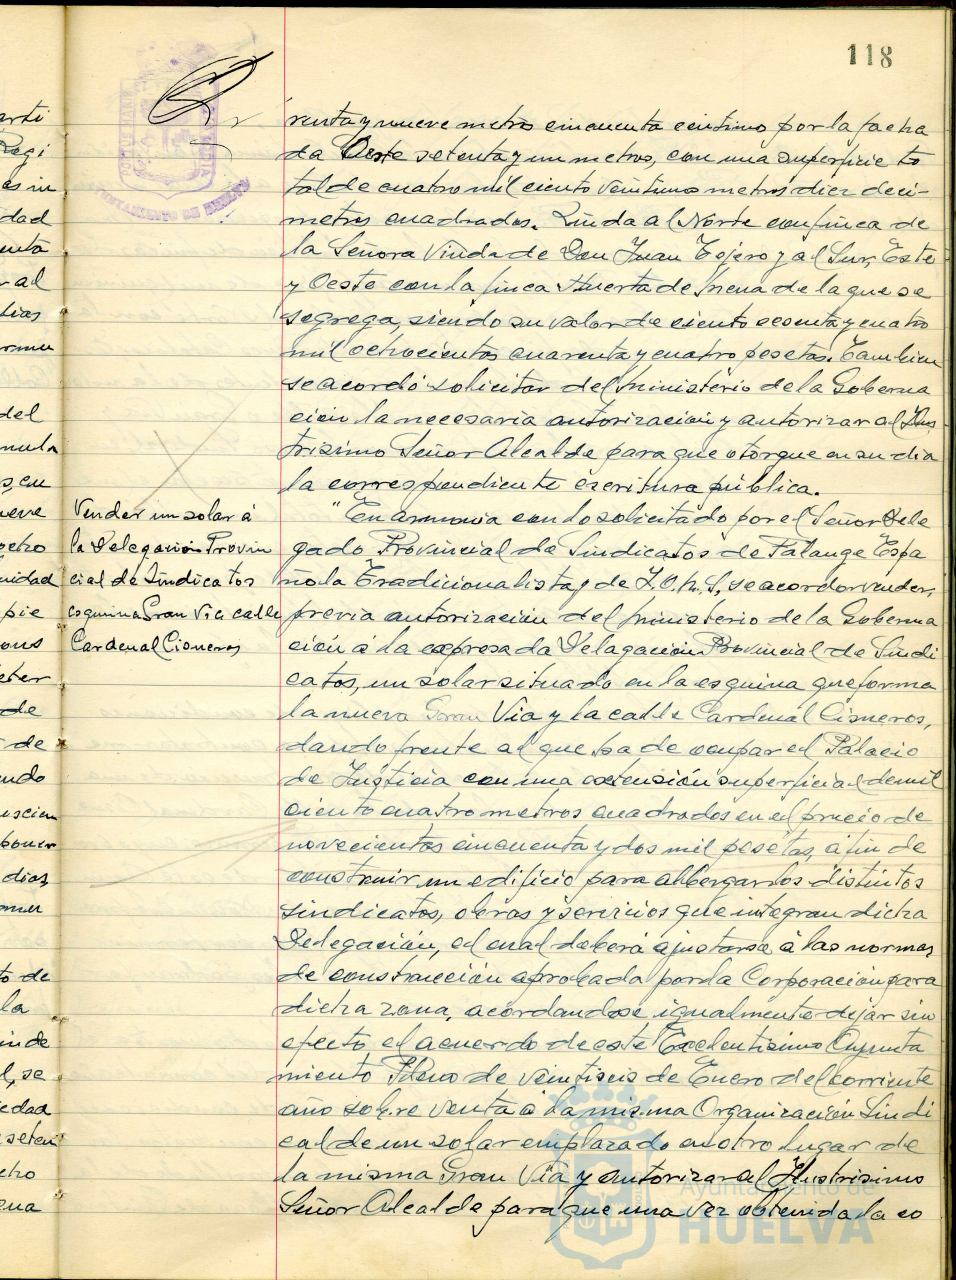 118
renta y nueve metro cincuenta centimo por la facha
da Oeste setenta y un metros, con una superficie to
tal de cuatro mil ciento veintiuno metros diez deci-
metros cuadrados. Linda al Norte con finca de
la Señora Viuda de Don Juan Tejero y al Sur, Este
y Oeste con la finca Huerta de Mena de la que se
segrega, siendo su valor de ciento sesenta y cuatro
mil ochocientos cuarenta y cuatro pesetas. Tambien
se acordó solicitar del Ministerio de la Goberna
ción la necesaria autorización y autorizar al Ilus
trisimo Señor Alcalde para que otorgue en su dia
la correspondiente escritura pública.
Vender un solar á
la Delegación Provin
cial de Sindicatos
esquina Gran Via calle
Cardenal Cisneros
"En armonia con lo solicitado por el Señor Dele
gado Provincial de Sindicatos de Falange Espa
ñola Tradicionalista y de J.O.N.S, se acordo vender,
previa autorización del Ministerio de la Goberna
ción á la expresada Delegación Provincial de Sindi
catos, un solar situado en la esquina que forma
la nueva Gran Via y la calle Cardenal Cisneros,
dando frente al que ha de ocupar el Palacio
de Justicia con una extensión superficial de mil
ciento cuatro metros cuadrados en el precio de
novecientas cincuenta y dos mil pesetas, á fin de
construir un edificio para albergar los distintos
sindicatos, obras y servicios que integran dicha
Delegación, el cual deberá ajustarse á las normas
de construcción aprobada por la Corporación para
dicha zona, acordandose igualmente dejar sin
efecto el acuerdo de este Excelentisimo Ayunta
miento Pleno de veintiseis de Enero del corriente
año sobre venta á la misma Organización Sindi
cal de un solar emplazado en otro lugar de
la misma Gran Via y autorizar al Ilustrisimo
Señor Alcalde para que una vez obtenida la co
Ayuntamiento de
HUELVA